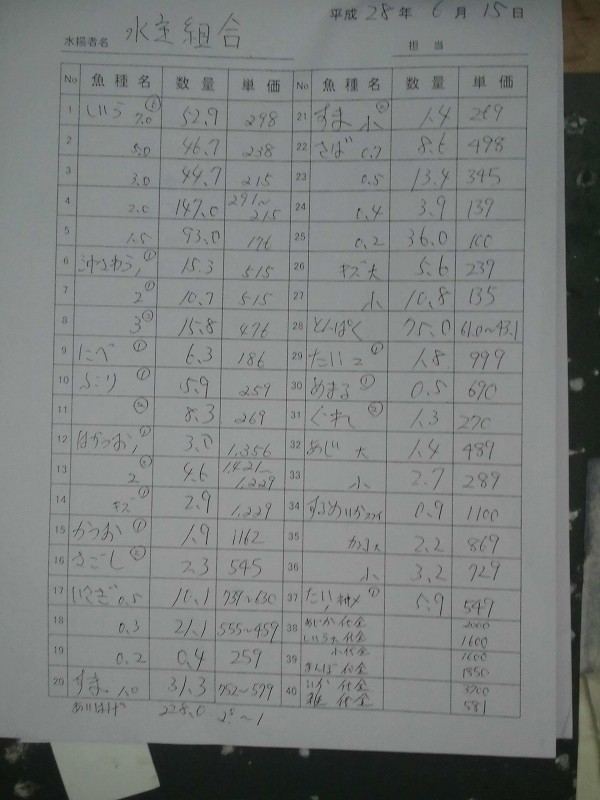 平成 28 年 6 月 15 日
水揚者名 水主組合 担当
No 魚種名 数量 単価 No 魚種名 数量 単価
1 しいら 7.0 52.9 298
2 5.0 46.7 238
3 3.0 44.7 215
4 2.0 147.0 291~215
5 1.5 93.0 176
6 沖さわら 1 15.3 515
7 2 10.7 515
8 3 15.8 476
9 にべ 6.3 186
10 5.9 259
11 8.3 269
12 はがつお 1 3.0 1,356
13 2 4.6 1,421~1,229
14 キズ 2.9 1,229
15 かつお 1.9 1162
16 さごし 2.3 545
17 いさぎ 0.5 16.1 739~630
18 0.3 21.1 555~459
19 0.2 0.4 259
20 すま 1.0 31.3 752~579
21 すま 小 1.4 269
22 さば 0.7 8.6 498
23 0.5 13.4 345
24 0.4 3.9 139
25 0.2 36.0 100
26 キズ大 5.6 239
27 小 10.8 135
28 とんぼく 75.0 61.0~43.1
29 たい 2 1.8 999
30 0.5 690
31 ぐれ 1.3 270
32 あじ 大 1.4 489
33 小 2.7 289
34 するめいか 0.9 1100
35 2.2 869
36 小 3.2 729
37 たい 5.9 549
38 代金 2000
しいら大 代金 1600
39 小代金 1600
まんぼ 代金 1850
40 いか 代金 3200
代金 581
228.0 ~1